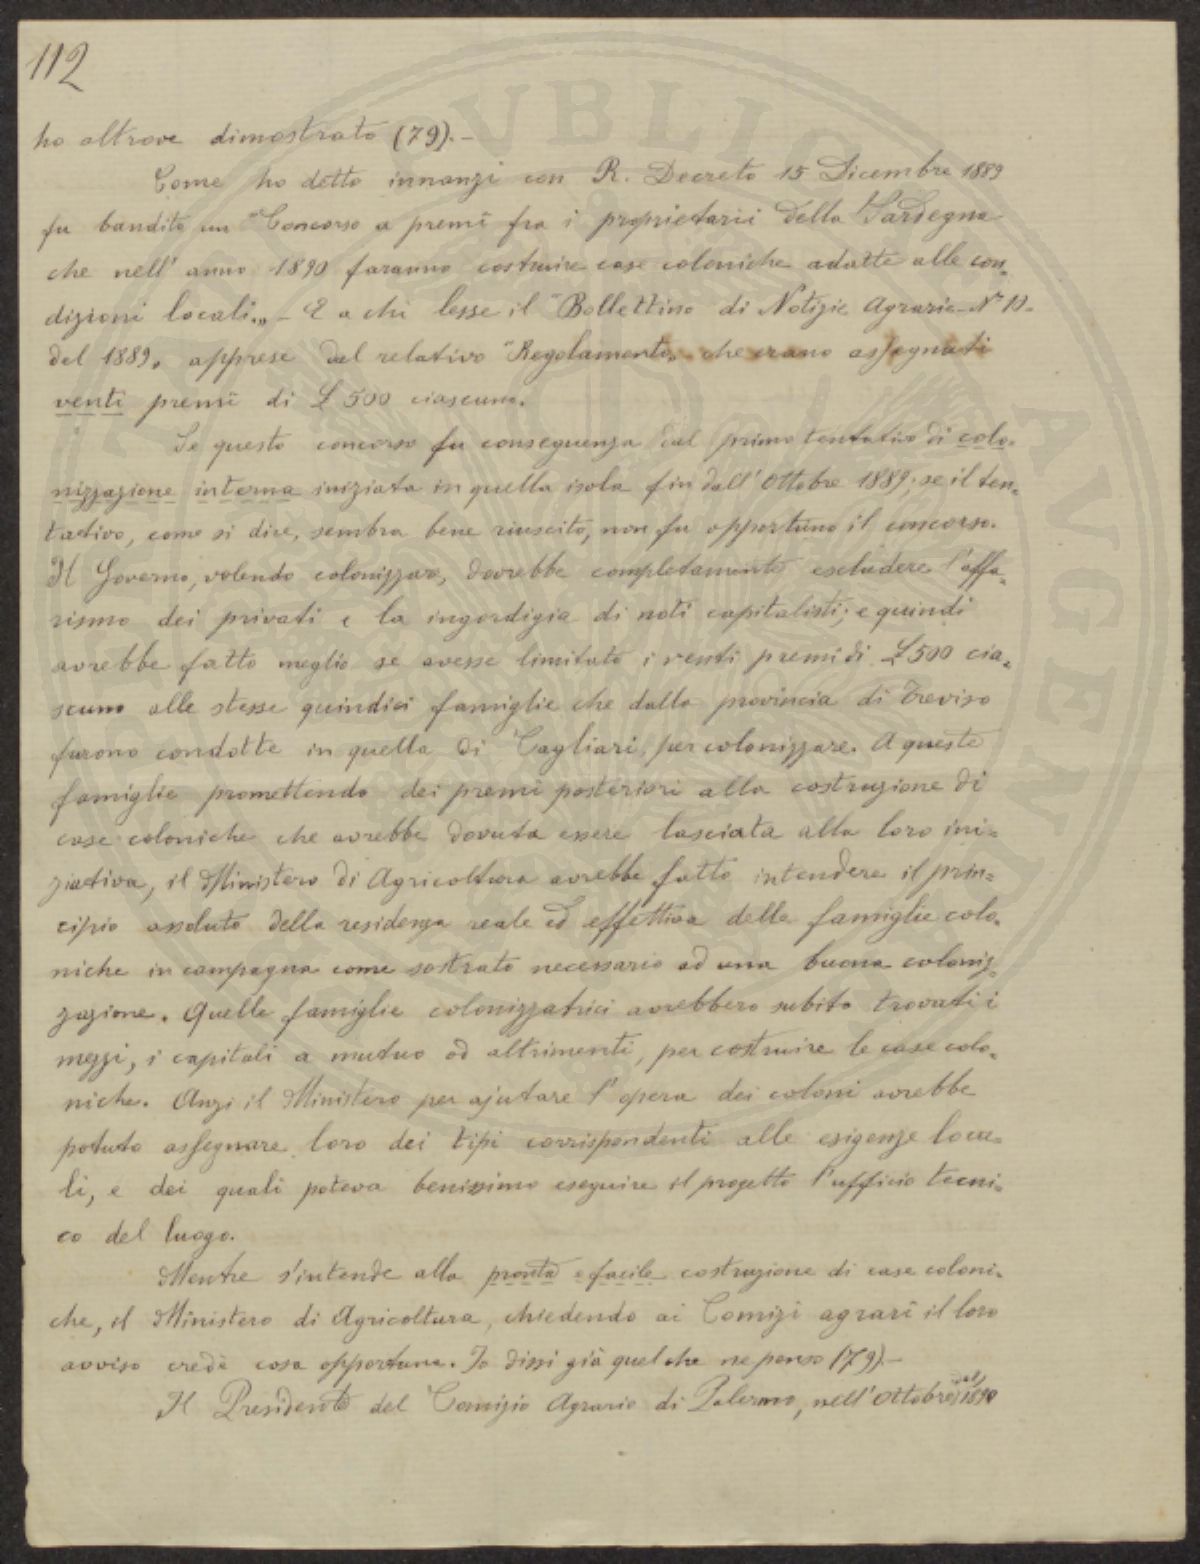 112
ho altrove dimostrato (79).-
Come ho detto innanzi con R. Decreto 15 Dicembre 1889
fu bandito un "Concorso a premi fra i proprietarii della Sardegna
che nell' anno 1890 faranno costruire case coloniche adatte alle con-
dizioni locali„ - E a chi lesse il "Bollettino di Notizie Agrarie - N.
del 1889„ apprese dal relativo "Regolamento„ che erano assegnati
venti premi di £ 500 ciascuno.
Se questo concorso fu conseguenza del primo tentativo di colo-
nizzazione interna iniziata in quella isola fin dall' Ottobre 1889; se il ten-
tativo, come si dice, sembra bene riuscito, non fu opportuno il concorso.
Il Governo, volendo colonizzare, dovrebbe completamente escludere l'affa-
rismo dei privati e la ingordigia di noti capitalisti; e quindi
avrebbe fatto meglio se avesse limitato i venti premi di £ 500 cia-
scuno alle stesse quindici famiglie che dalla provincia di Treviso
furono condotte in quella di Cagliari, per colonizzare. A queste
famiglie promettendo dei premi posteriori alla costruzione di
case coloniche che avrebbe dovuta essere lasciata alla loro ini-
ziativa, il Ministero di Agricoltura avrebbe fatto intendere il prin-
cipio assoluto della residenza reale ed effettiva delle famiglie colo-
niche in campagna come sostrato necessario ad una buona coloniz-
zazione. Quelle famiglie colonizzatrici avrebbero subito trovati i
mezzi, i capitali a mutuo od altrimenti, per costruire le case colo-
niche. Anzi il Ministero per ajutare l' opera dei coloni avrebbe
potuto assegnare loro dei tipi corrispondenti alle esigenze loca-
li, e dei quali poteva benissimo eseguire il progetto l'ufficio tecni-
co del luogo.
Mentre s'intende alla pronta e facile costruzione di case coloni-
che, il Ministero di Agricoltura, chiedendo ai Comizi agrari il loro
avviso credè cosa opportuna. Io dissi già quel che ne penso (79).-
Il Presidente del Comizio Agrario di Palermo, nell' Ottobre 1890
PVBLIC
AVGENT